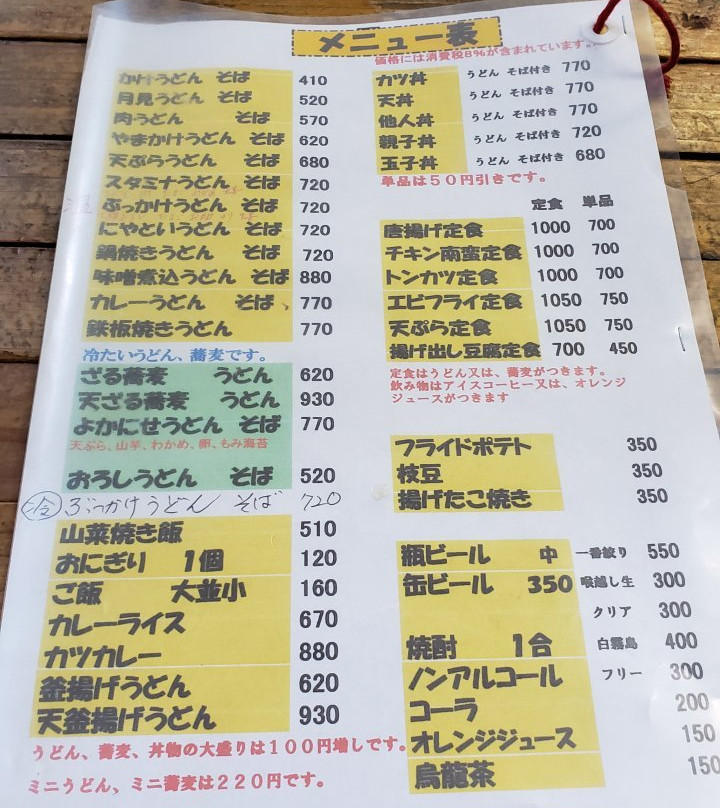 メニュー表
価格には消費税8%が含まれています。
かけうどん そば 410
月見うどん そば 520
肉うどん そば 570
やまかけうどん そば 620
天ぷらうどん そば 680
スタミナうどん そば 720
ぶっかけうどん そば 720
にやというどん そば 720
鍋焼きうどん そば 720
味噌煮込うどん そば 880
カレーうどん そば 770
鉄板焼きうどん 770
冷たいうどん、蕎麦です。
ざる蕎麦 うどん 620
天ざる蕎麦 うどん 930
よかにせうどん そば 770
天ぷら、山芋、わかめ、卵、もみ海苔
おろしうどん そば 520
冷 ぶっかけうどん そば 720
山菜焼き飯 510
おにぎり 1個 120
ご飯 大並小 160
カレーライス 670
カツカレー 880
釜揚げうどん 620
天釜揚げうどん 930
うどん、蕎麦、丼物の大盛りは100円増しです。
ミニうどん、ミニ蕎麦は220円です。
カツ丼 うどん そば付き 770
天丼 うどん そば付き 770
他人丼 うどん そば付き 770
親子丼 うどん そば付き 720
玉子丼 うどん そば付き 680
単品は50円引きです。
定食 単品
唐揚げ定食 1000 700
チキン南蛮定食 1000 700
トンカツ定食 1000 700
エビフライ定食 1050 750
天ぷら定食 1050 750
揚げ出し豆腐定食 700 450
定食はうどん又は、蕎麦がつきます。
飲み物はアイスコーヒー又は、オレンジ
ジュースがつきます
フライドポテト 350
枝豆 350
揚げたこ焼き 350
瓶ビール 中 一番絞り 550
缶ビール 350 喉越し生 300
クリア 300
焼酎 1合 白霧島 400
ノンアルコール フリー 300
コーラ 200
オレンジジュース 150
烏龍茶 150